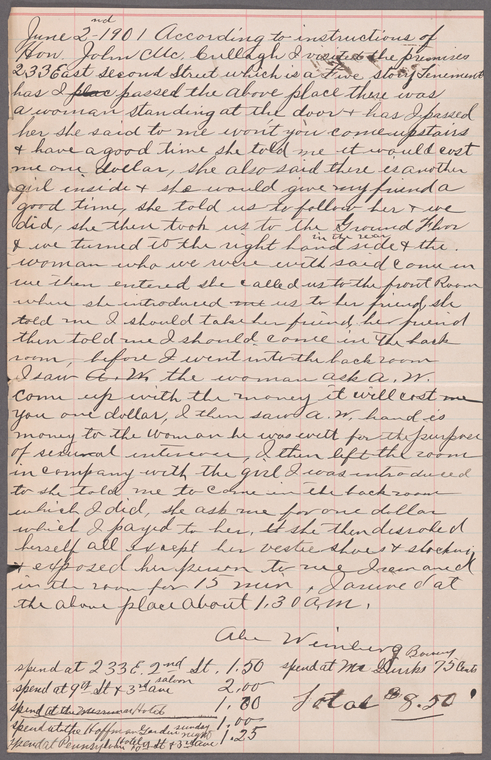 June 2nd - 1901 According to instructions of
Hon. John Mc. Cullagh I visited the premises
233 East Second Street which is a Five story Tenement
has I plac passed the above place there was
a woman standing at the door & has I passed
her she said to me wont you come upstairs
& have a good time she told me it would cost
me one dollar, she also said there is another
girl inside & she would give my friend a
good time, she told us to follow her & we
did, she then took us to the Ground Floor
in the rear
& we turned to the right hand side & the
woman who we were with said come in
we then entered she called us to the front Room
when she introduced me us to her friend, she
told me I should take her friend, her friend
then told me I should come in the back
room, before I went into the back room
I saw A. W. the woman ask A. W.
come up with the money it will cost me
you one dollar, I then saw A. W. hand is
money to the woman he was with for the purpose
of sexual, I then left the room
in company with the girl I was introduced
to she told me to come in the back room
which I did, she ask me for one dollar
which I payed to her, & she then disrobed
herself all except her vestie shoes & stockings
& exposed her person to me I remained
in the room for 15 min, I arrived at
the above place about 1.30 a.m.
Abe Weinberg
spend at 233 E. 2nd St. 1.50 spend at Mc Gurks Bowery 75 Cents
spend at 9th St & 3rd ave saloon 2.00
spend at the Hotel 1.80
Total $8.50
spend at the Hoffman Garden sunday night 1.00
spend at Pennsylvania Hotel 10th St & 3rd ave 1.25